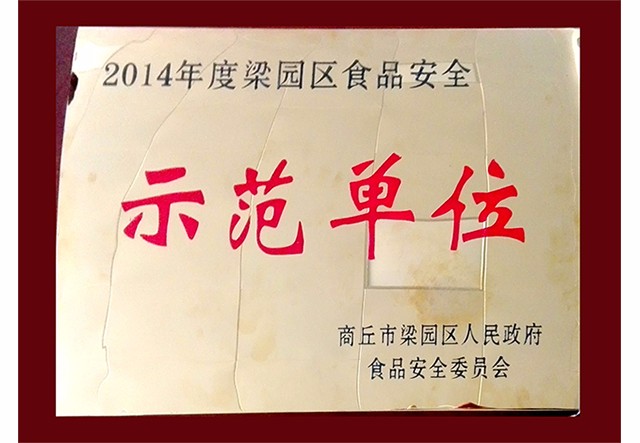 2014年度梁园区食品安全
示范单位
商丘市梁园区人民政府
食品安全委员会